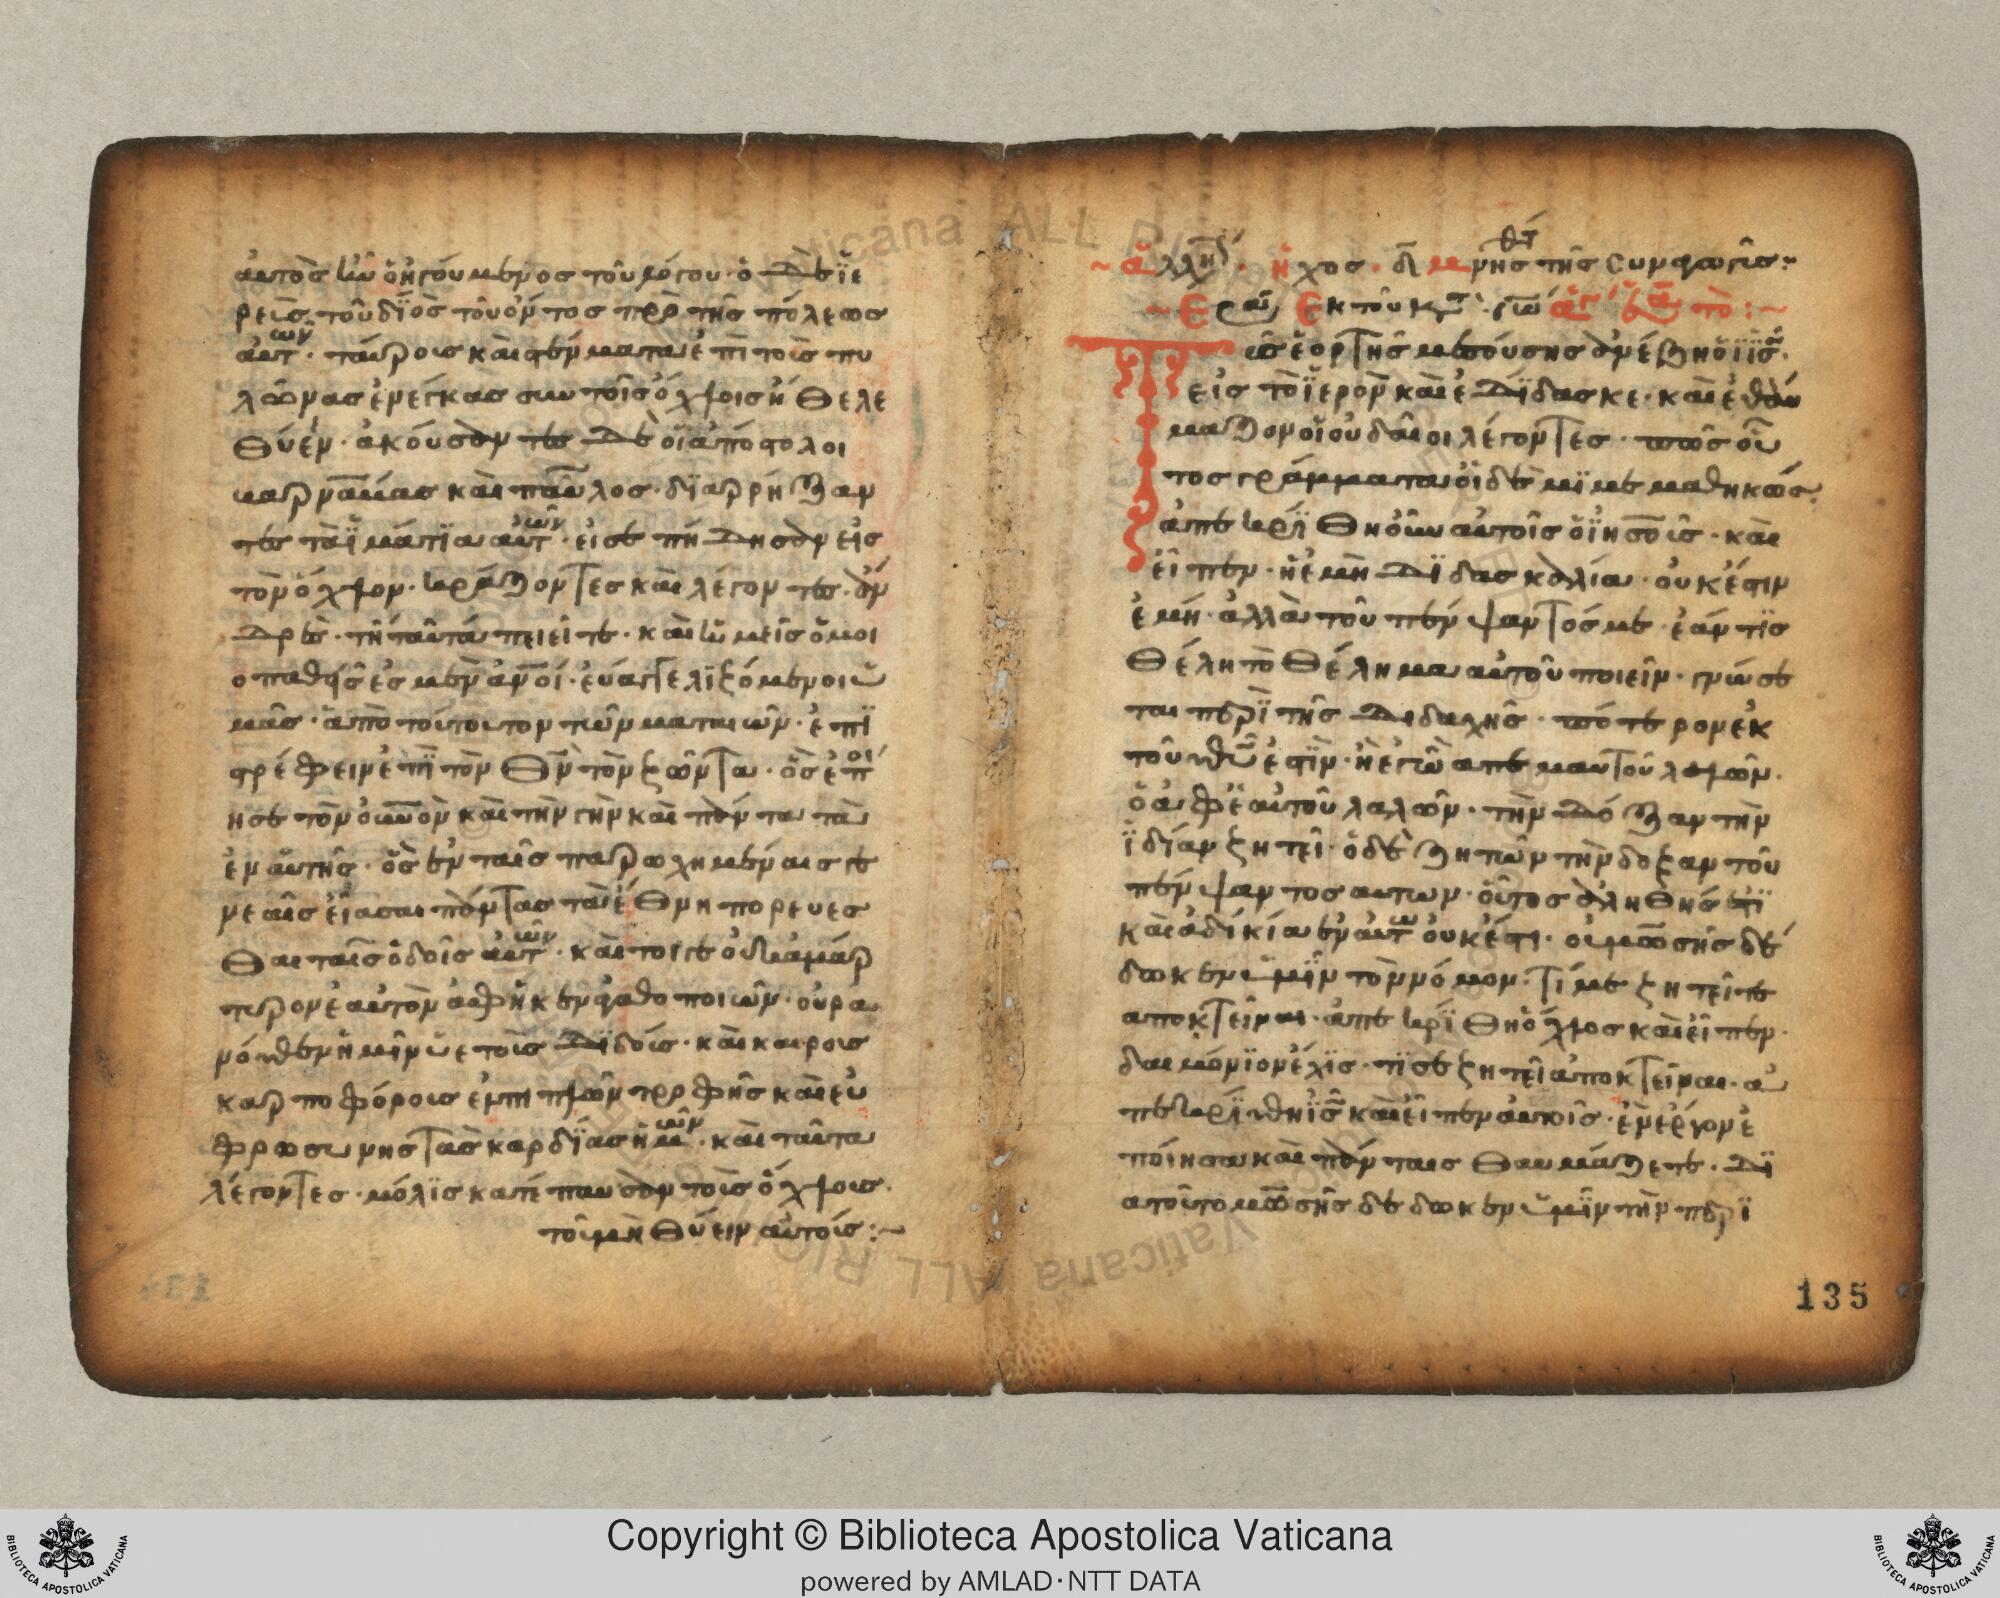 αυτὸς ἦν ὁ ἡγούμενος τοῦ λόγου· ὁ δὲ ἱε
ρεὺς τοῦ διὸς τοῦ ὄντος πρὸ τῆς πόλεως
αὐτῶν· ταύρους καὶ στέμματα ἐπὶ τοὺς πυ
λῶνας ἐνέγκας σὺν τοῖς ὄχλοις ἤθελε
θύειν· ἀκούσαντες δὲ οἱ ἀπόστολοι
βαρνάβας καὶ παῦλος· διαρρήξαν
τες τὰ ἱμάτια αὐτῶν· εἰσεπήδησαν εἰς
τὸν ὄχλον· κράζοντες καὶ λέγοντες· ἄν
δρες· τί ταῦτα ποιεῖτε· καὶ ἡμεῖς ὅμοι
οπαθεῖς ἐσμεν ἀνοί· εὐαγγελιζόμενοι ὑ
μᾶς· ἀπὸ τούτου τον τῶν ματαιῶν· ἐπι
στρέφειν ἐπὶ τὸν θν τὸν ζῶντα· ὃς ἐποί
ησε τὸν οὐνον καὶ τὴν γῆν καὶ πάντα τὰ
ἐν αὐτῆς· ὃς ἐν ταῖς παρωχημέναις γε
νεαῖς εἴασαι πάντας τὰ ἔθνη πορεύεσ
θαι ταῖς ὁδοῖς αὐτῶν· καὶ τοι γε οὐκ ἀμάρ
τυρον ἑαυτὸν ἀφῆκεν ἀγαθοποιῶν· οὐρα
νόθεν ἡμῖν ὑετοὺς διδούς· καὶ καιρους
καρποφόρους ἐμπιπλῶν τρφῆς καὶ εὐ
φροσύνης τὰς καρδίας ἡμῶν· καὶ ταῦτα
λέγοντες· μόλις κατέπαυσαν τοὺς ὄχλους.
τοῦ μὴ θύειν αὐτοῖς:~
~ ἀλλη· ἦχος· δ μνησθητ τῆς συναγωγῆς:~
~ Ευαγ Ἐκ τοῦ κτ· ιω ἁγ
Τῆς ἑορτῆς μεσούσης ἀνέβη ὁ ις
εἰς τὸ ἱερὸν καὶ ἐδίδασκε· καὶ ἐθαύ
μαζον οἱ ιουδαῖοι λέγοντες· πῶς οὗ
τος γράμματα οἶδε μὴ μεμαθηκώς.
ἀπεκρίθη οὖν αὐτοῖς ὁ ἰησοῦς· καὶ
εἶπεν· ἡ ἐμὴ διδασκαλία· οὐκ ἔστιν
ἐμή· ἀλλὰ τοῦ πέμψαντός με· ἐάν τις
θέλη τὸ θέλημα αὐτοῦ ποιεῖν· γνώσε
ται περὶ τῆς διδαχῆς· πότερον ἐκ
τοῦ θυ ἐστὶν· ἢ ἐγὼ ἀπ ἐμαυτοῦ λαλῶν.
ὁ ἀφ ἑαυτοῦ λαλῶν· τὴν δόξαν τὴν
ἰδίαν ζητεῖ· ὁ δὲ ζητῶν τὴν δοξαν τοῦ
πέμψαντος αυτων· οὗτος ἀληθής ἐστι
καὶ ἀδικία ἐν αὐτῶ οὐκ ἔστι· οὐ μωσῆς δέ
δωκεν ὑμῖν τὸν νόμον· τί με ζητεῖτε
αποκτεῖναι· ἀπεκρίθη ὁ ὄχλος καὶ εἶπεν·
δαιμόνιον ἔχις· τίς σε ζητεῖ ἀποκτεῖναι· ἀ
πεκρίθη ις καὶ εἶπεν αὐτοῖς· ἓν ἔργον ἐ
ποίησα καὶ πάντες θαυμάζετε· δι
α τοῦτο μωσῆς δέδωκεν ὑμῖν τὴν περι
135
Copyright © Biblioteca Apostolica Vaticana
powered by AMLAD·NTT DATA